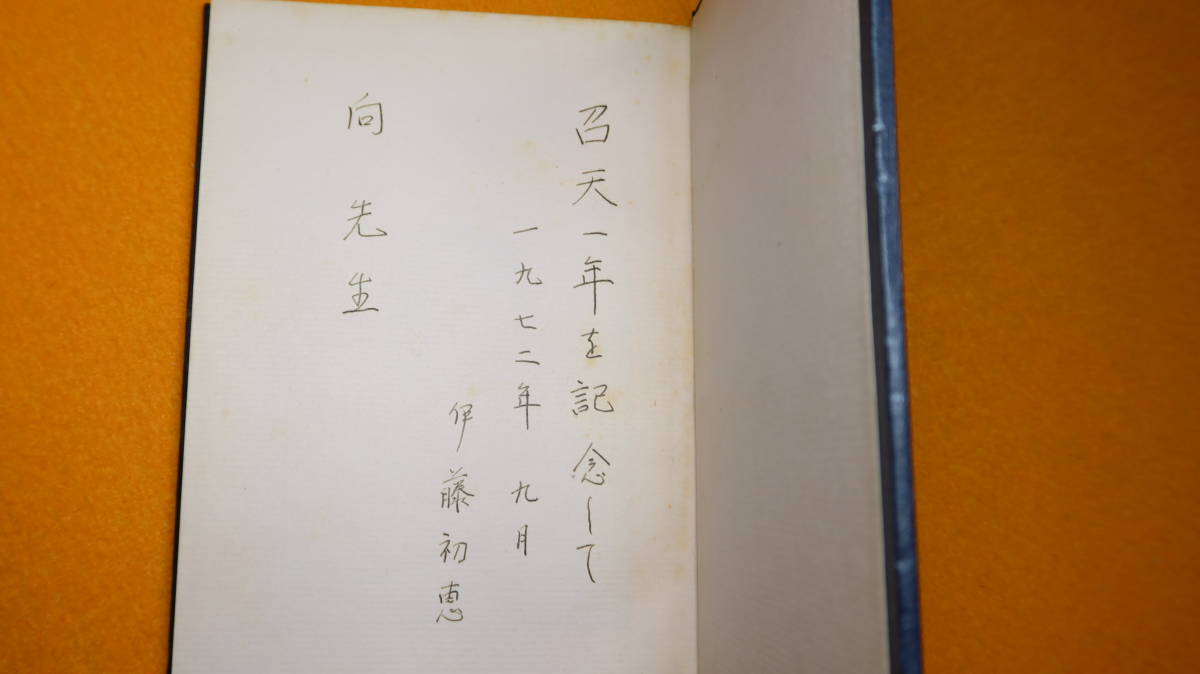 召天一年を記念して
一九七二年 九月
伊藤初恵
向先生